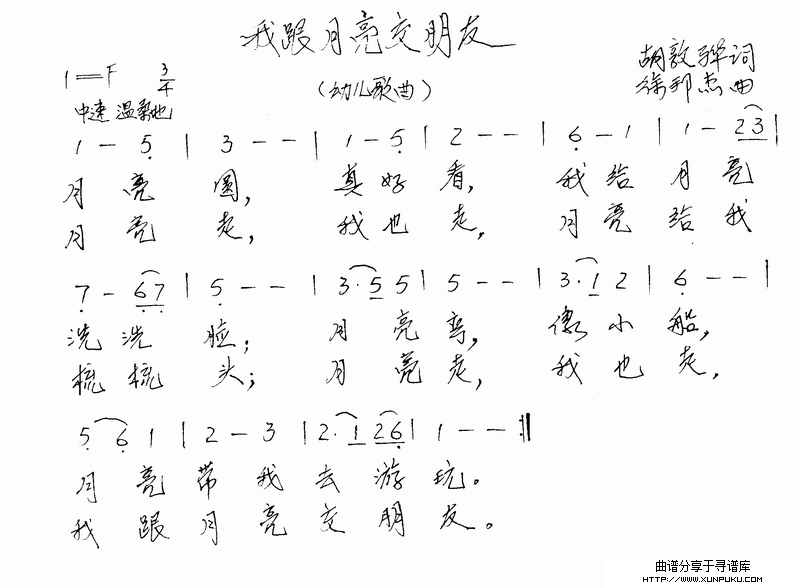 我跟月亮交朋友
1=F 3/4
（幼儿歌曲）
胡敦骅词
徐邦杰曲
中速 温柔地
1 - 5̣ | 3 - - | 1 - 5̣ | 2 - - | 6̣ - 1 | 1 - 2 3 |
月亮 圆， 真好 看， 我给 月亮
月亮 走， 我也 走， 月亮 给我
7̣ - 6̣ 7̣ | 5̣ - - | 3 · 5 5 | 5 - - | 3 · 1 2 | 6̣ - - |
洗洗 脸； 月亮 弯， 像小 船，
梳梳 头； 月亮 走， 我也 走，
5̣ 6̣ 1 | 2 - 3 | 2 · 1 2 6̣ | 1 - - :||
月亮带我去游玩。
我跟月亮交朋友。
曲谱分享于寻谱库
HTTP://WWW.XUNPUKU.COM